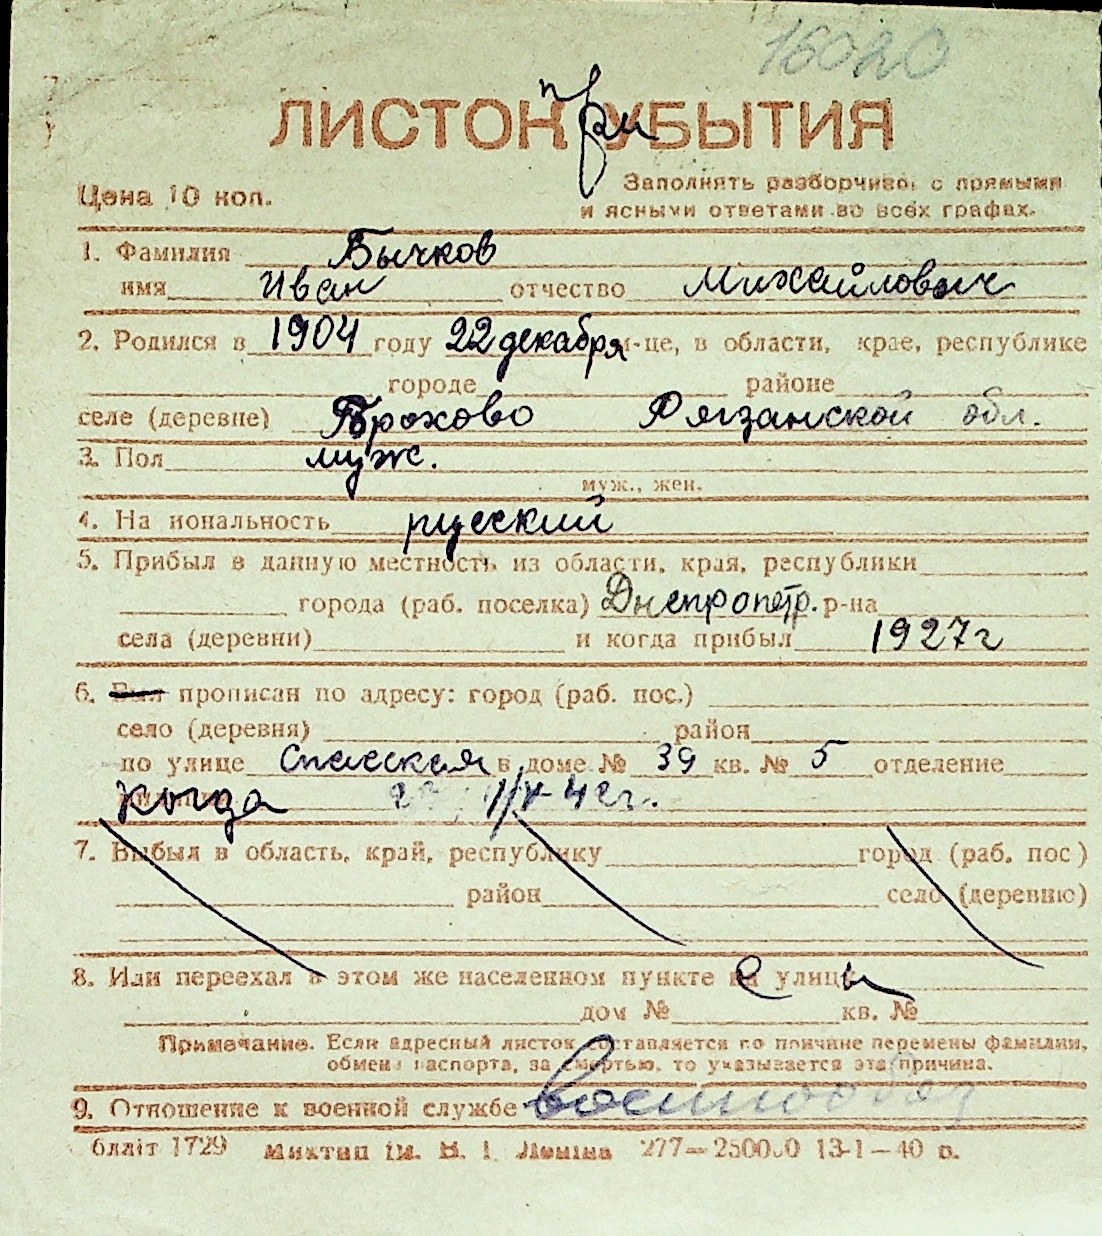 16020
ЛИСТОК при УБЫТИЯ
Цена 10 коп.
Заполнять разборчиво, с прямыми
и ясными ответами во всех графах.
1. Фамилия Бычков
имя Иван отчество Михайлович
2. Родился в 1904 году 22 декабря м-це, в области, крае, республике
городе районе
селе (деревне) Ряззанской обл.
3. Пол муж.
муж., жен.
4. На иональность русский
5. Прибыл в данную местность из области, края, республики
города (раб. поселка) Днепропетр. р-на
села (деревни) и когда прибыл 1927 г
6. Был прописан по адресу: город (раб. пос.)
село (деревня) район
по улице Спасская в доме № 39 кв. № 5 отделение
когда 42 г.
7. Выбыл в область, край, республику город (раб. пос)
район село (деревню)
8. Или переехал в этом же населенном пункте с улицы
дом № кв. №
Примечание. Если адресный листок составляется по причине перемены фамилии,
обмена паспорта, за смертью, то указывается эта причина.
9. Отношение к военной службе военнообяз
блліт 1729 Миктип ім. В. І. Леніна 277—250000 13-1—40 р.